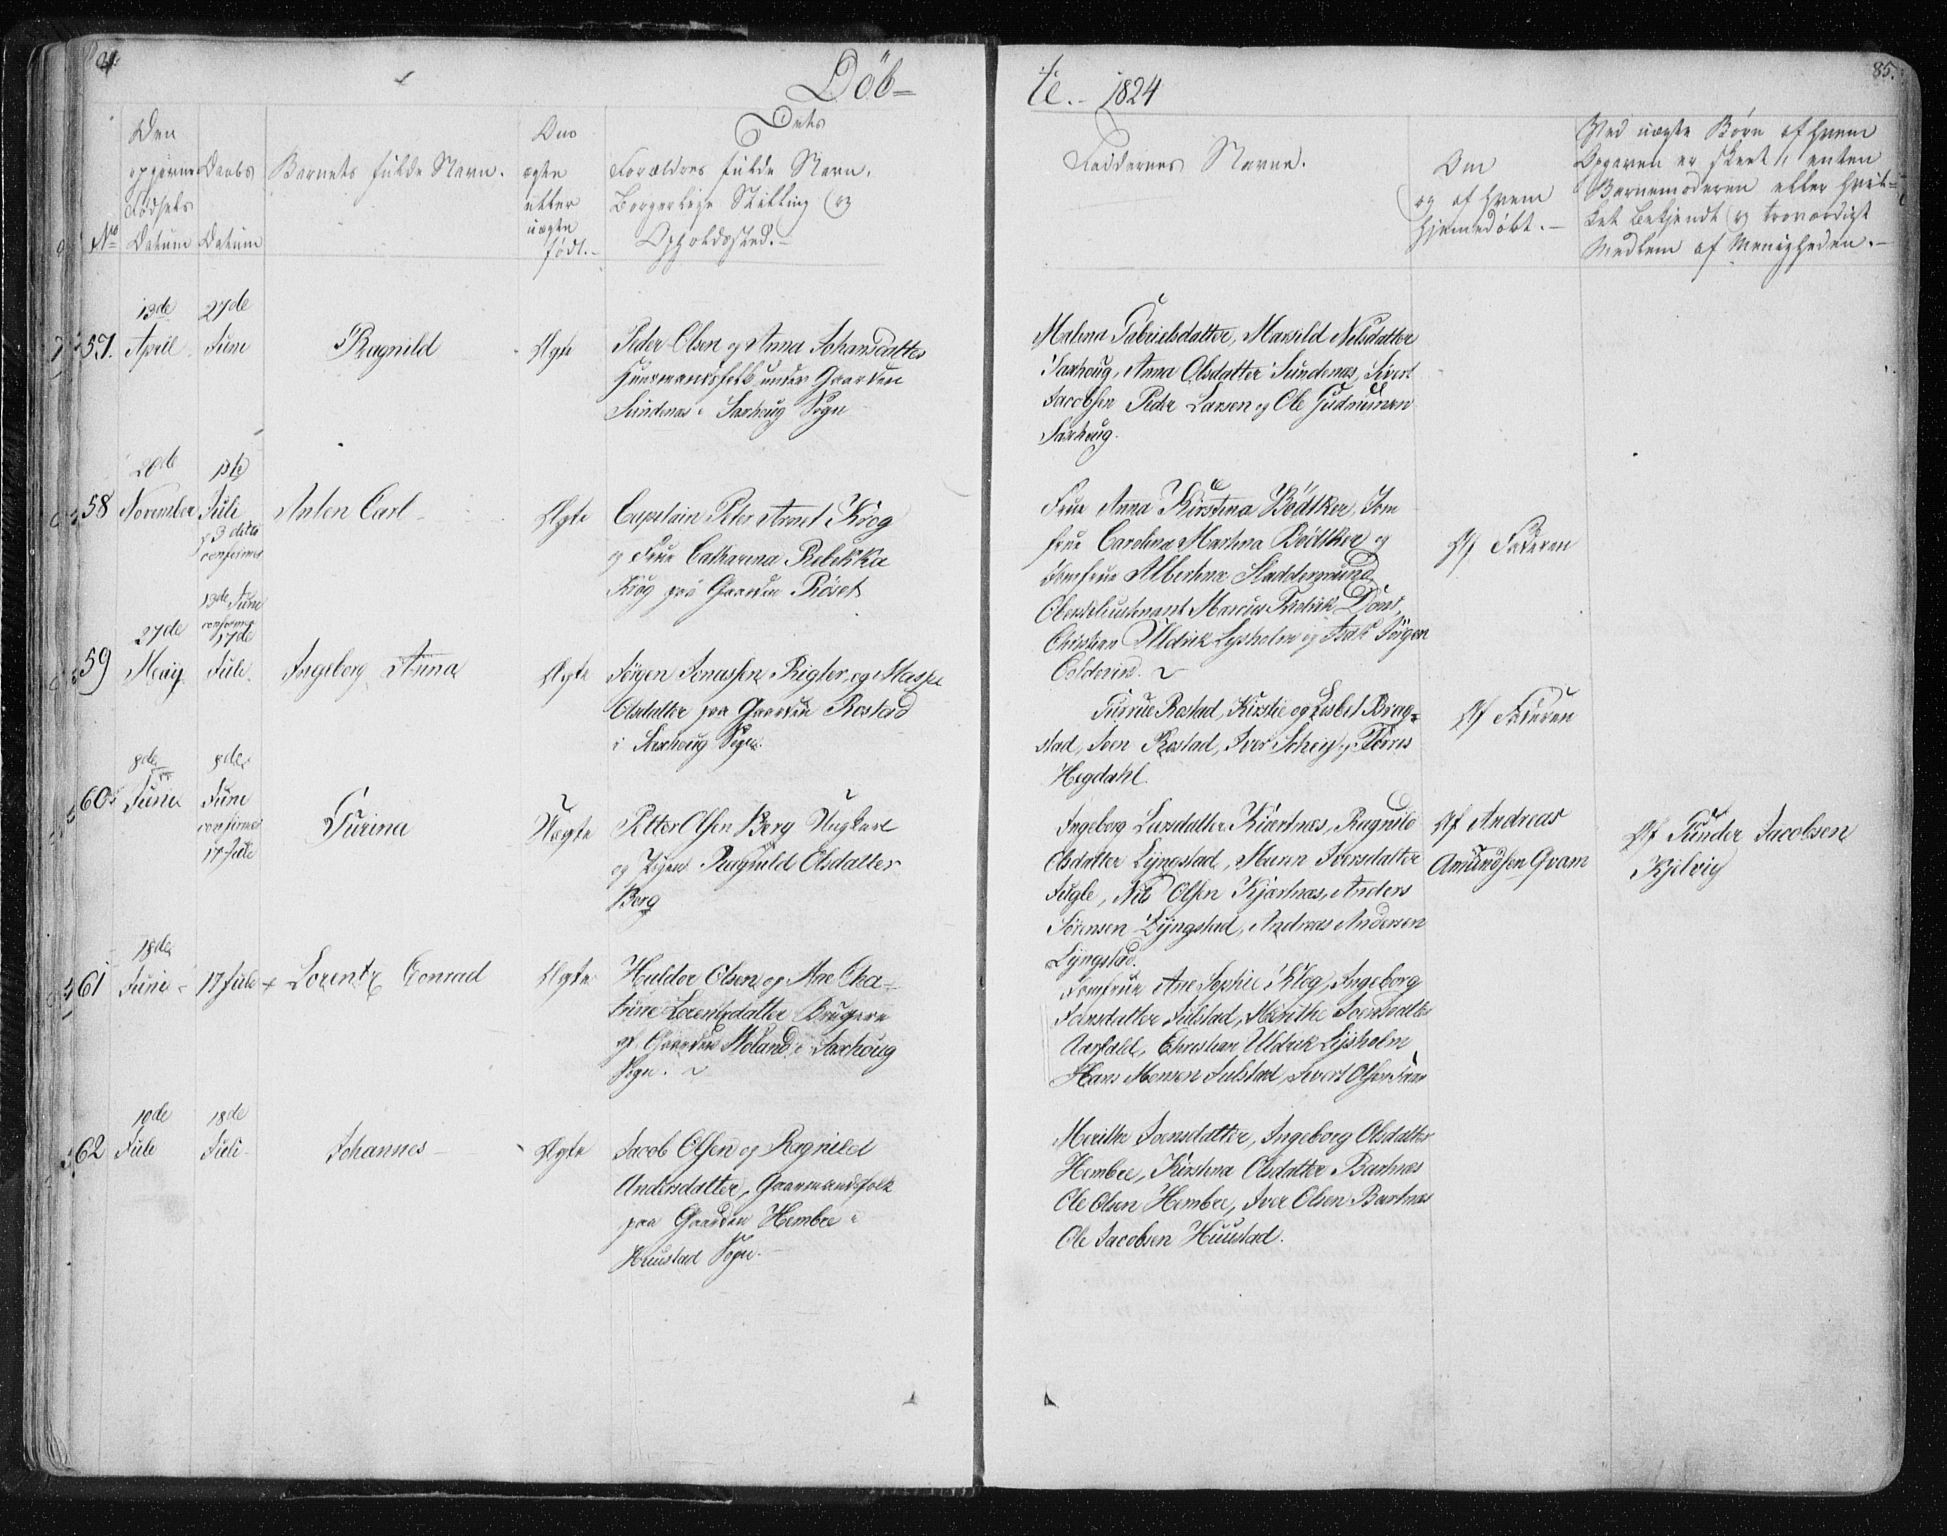 Döb-
te. 1824
85.
Den
opgivne
Födsels
Datum
No
Daabs
Datum
Barnets fulde Navn.
Om
ægte
eller
uægte
födt.-
Dets
Forældres fulde Navn,
Borgerlige Stilling og
Opholdssted.-
Faddernes Navne.
Om
og af hvem
hjemmedöbt.-
Ved uægte Börn af hvem
Opgaven er skeet, enten
Barnemoderen eller hvil-
ket bekjendt og troværdigt
Medlem af Menigheden.-
57. 13de April 27de Juni
Ragnild
Ægte
Peder Olsen og Anna Johansdatter
Huusmandsfolk under Gaarden
Sundenæs i Saxhoug Sogn
Malena Gabrielsdatter, Marsild Nilsdatter
Saxhoug, Anna Olsdatter Sundenæs, Sivert
Jacobsen Peder Larsen og Ole Gudmunsen
Saxhoug.
58 20de November
Juli
3 ditto
confirmer
Anton Carl
Ægte
Capitain Peter Arnet Krog
og Frue Catharena Rebekka
Krog paa Gaarden Röset
Frue Anna Kirstina Bödtker, Jom
frue Carolina Martina Bödtker og
Jomfrue Albertine Sladdergrund
Oberstlieutenant Marcus Fredrik Dons,
Christian Uldrik Lysholm og Jörgen
Af Faderen
59 27de May
13de Juni
confirmer
17de
Jule
Ingeborg Anna
Ægte
Jörgen Jonassen Rigter og Maria
Olsdatter paa Gaarden Rostad
i Saxhoug Sogn.
Gurrue Rostad, Kirstie og Lisbet Brag-
stad, Joen Rostad, Iver Schey, Törres
Hegdahl.
Af Faderen
60. 8de Junii
8de
Juni
confirmer
17 Jule
Gurina
Uægte
Petter Olsen Berg Ungkarl
og Pigen Ragnild Olsdatter
Berg
Ingeborg Larsdatter Kiærtnæs, Ragnild
Olsdatter Lyngstad, Marin Iversdatter
Fugle, Nils Olsen Kjærtnæs, Anders
Sörensen Lyngstad, Andreas Andersen
Lyngstad.
Af Andreas
Amundsen Gvam
Af Gunder Jacobsen
Kjelvig
61 18de Junii
17 Jule
Lorentz Conrad
Ægte
Haldor Olsen og Ane Cha-
trine Lorentzdatter Brugere
af Gaarden Moland i Saxhoug
Sogn.
Jomfrue Ane Sophie Klog, Ingeborg
Joensdatter Julstad, Merithe Joensdatter
Aarfald, Christian Uldrik Lysholm
Hans Monsen Julstad, Sivert Olsen
62 10de Jule
18de Juli
Johannes
Ægte
Jacob Olsen og Ragnild
Andersdatter, Gaarmandsfolk
paa Gaarden Hembre i
Huustad Sogn.
Merithe Joensdatter, Ingeborg Olsdatter
Hembre, Kirstina Olsdatter Bartnæs
Ole Olsen Hembre, Iver Olsen Bartnæs
Ole Jacobsen Huustad.